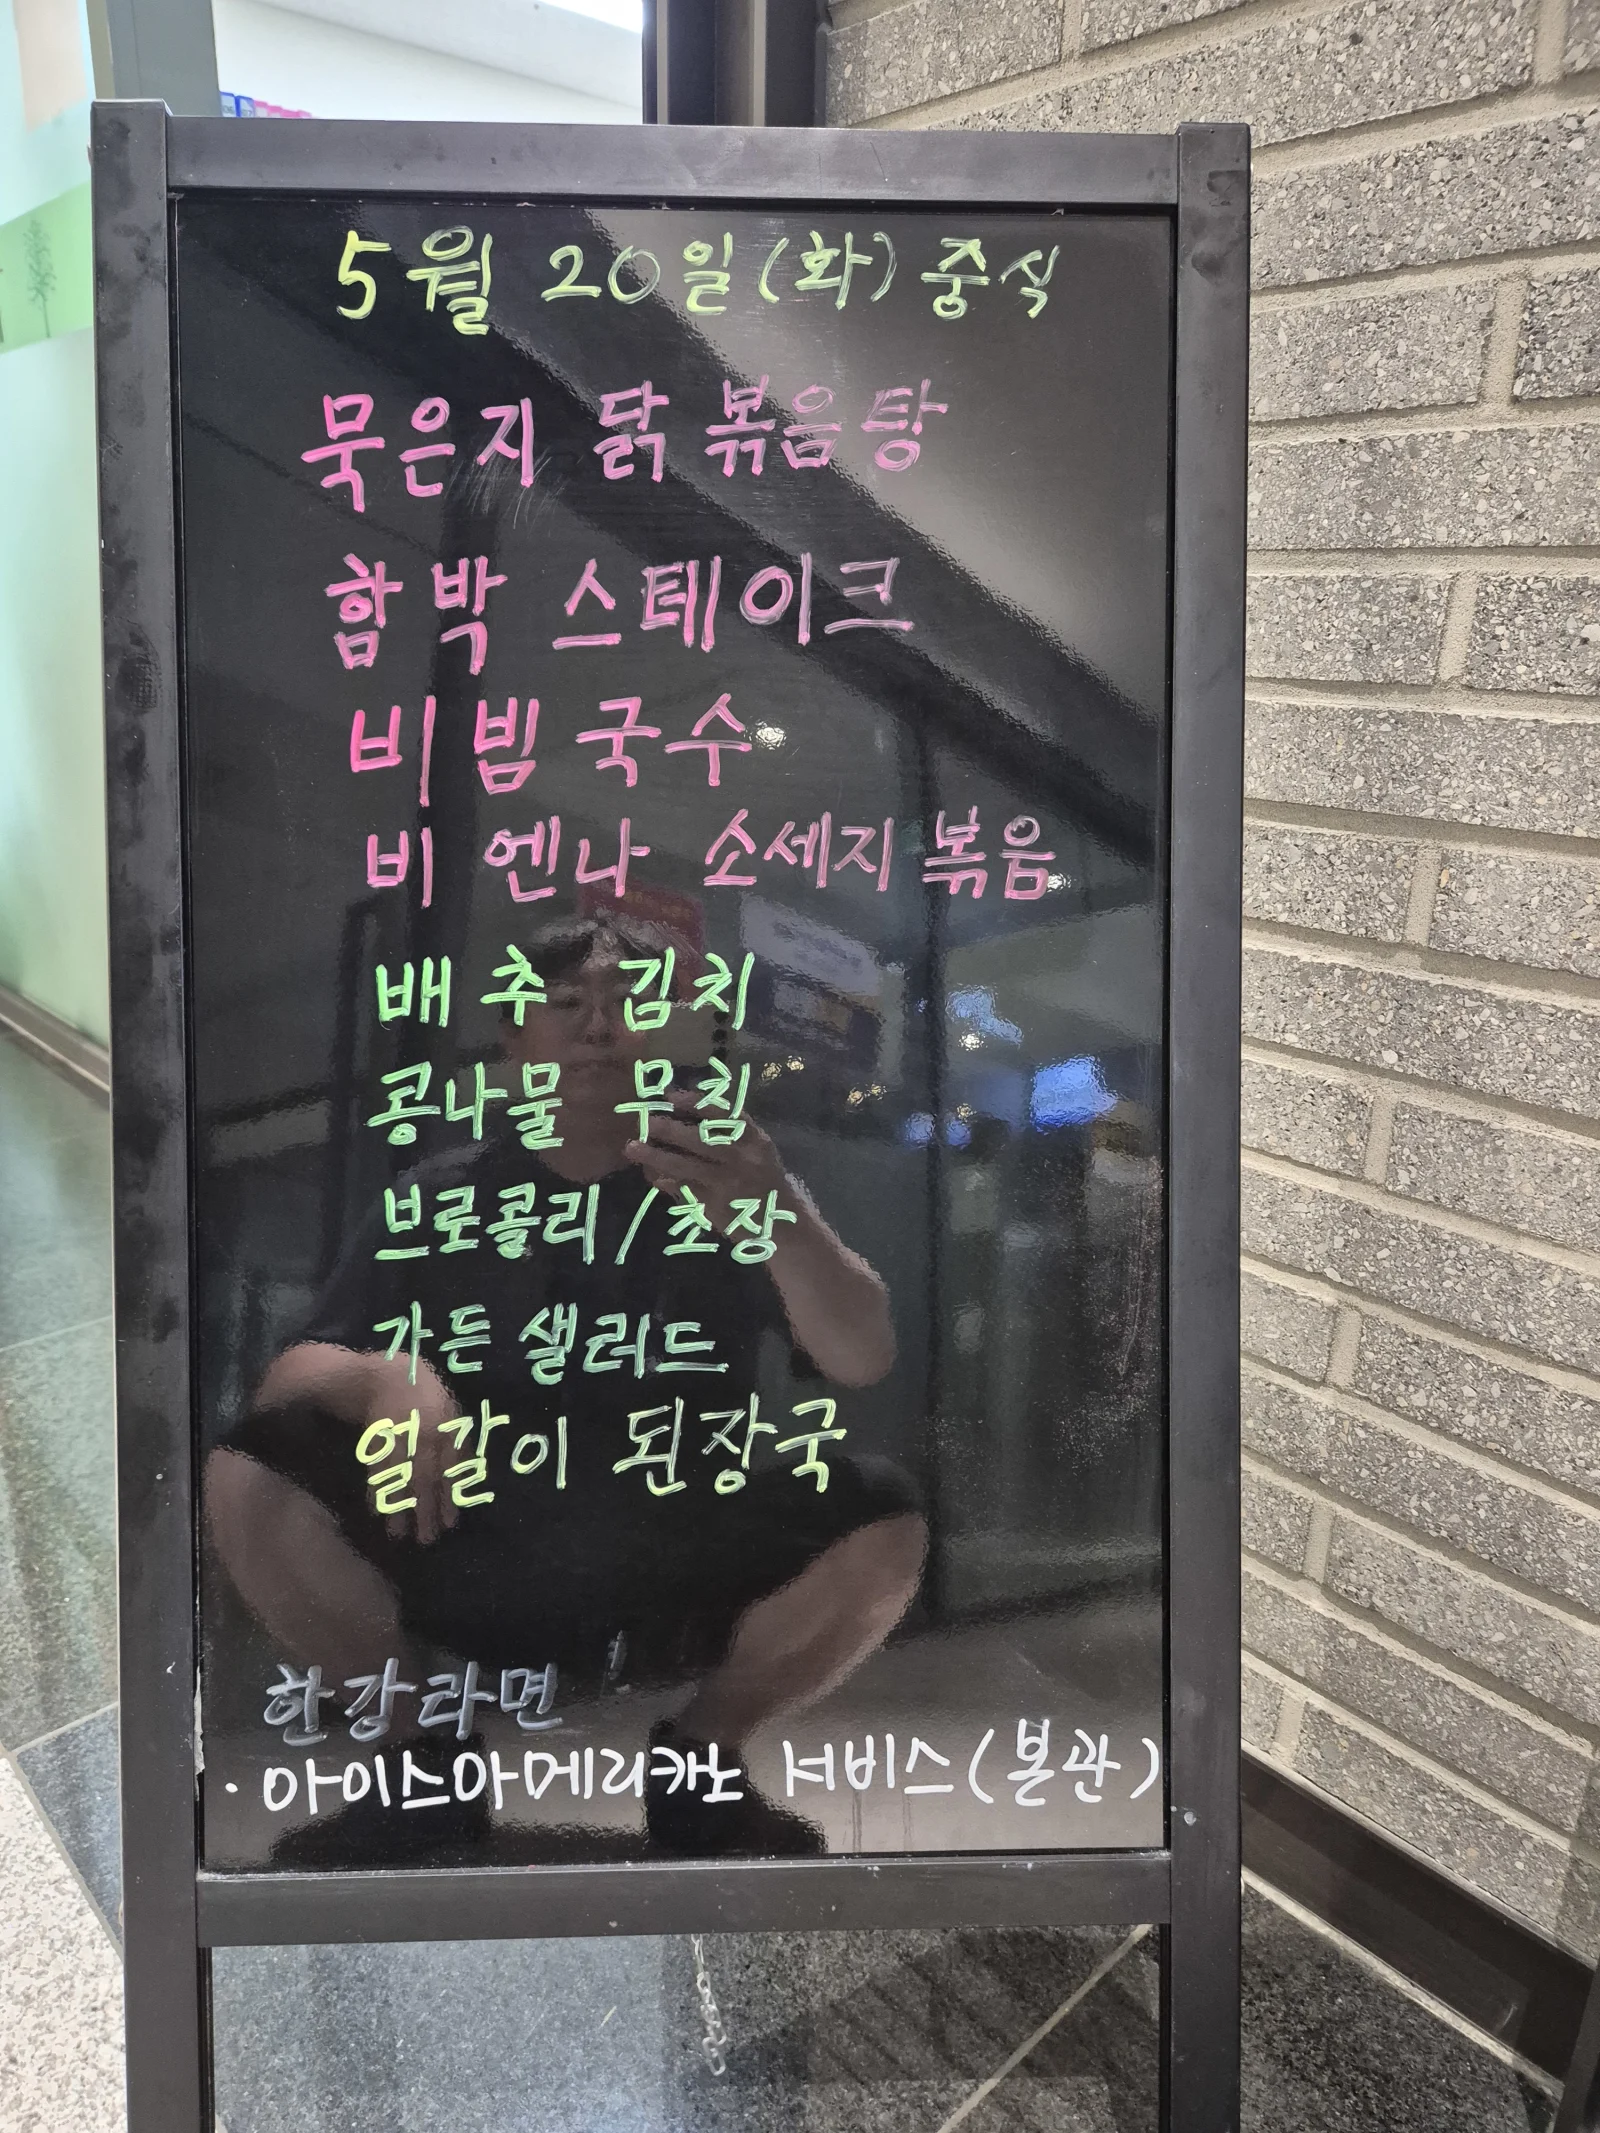 5월 20일(화) 중식
묵은지 닭 볶음탕
함박 스테이크
비빔국수
비엔나 소세지 볶음
배추 김치
콩나물 무침
브로콜리/초장
가든 샐러드
얼갈이 된장국
한강라면
· 아이스아메리카노 서비스(본관)